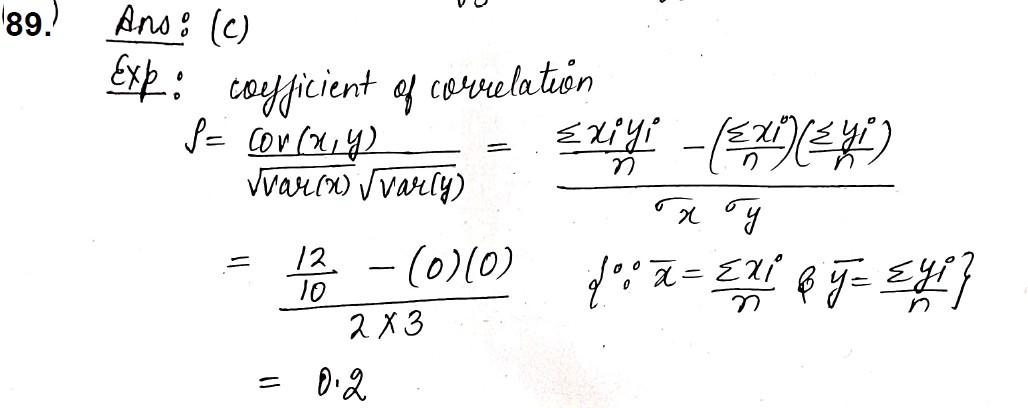 89.) Ans: (C)
Exp: coefficient of correlation
ρ = Cov(x,y) / √var(x) √var(y) = (Σxiyi/n - (Σxi/n)(Σyi/n)) / σx σy
= (12/10 - (0)(0)) / 2×3 {∵ x̄ = Σxi/n & ȳ = Σyi/n}
= 0.2